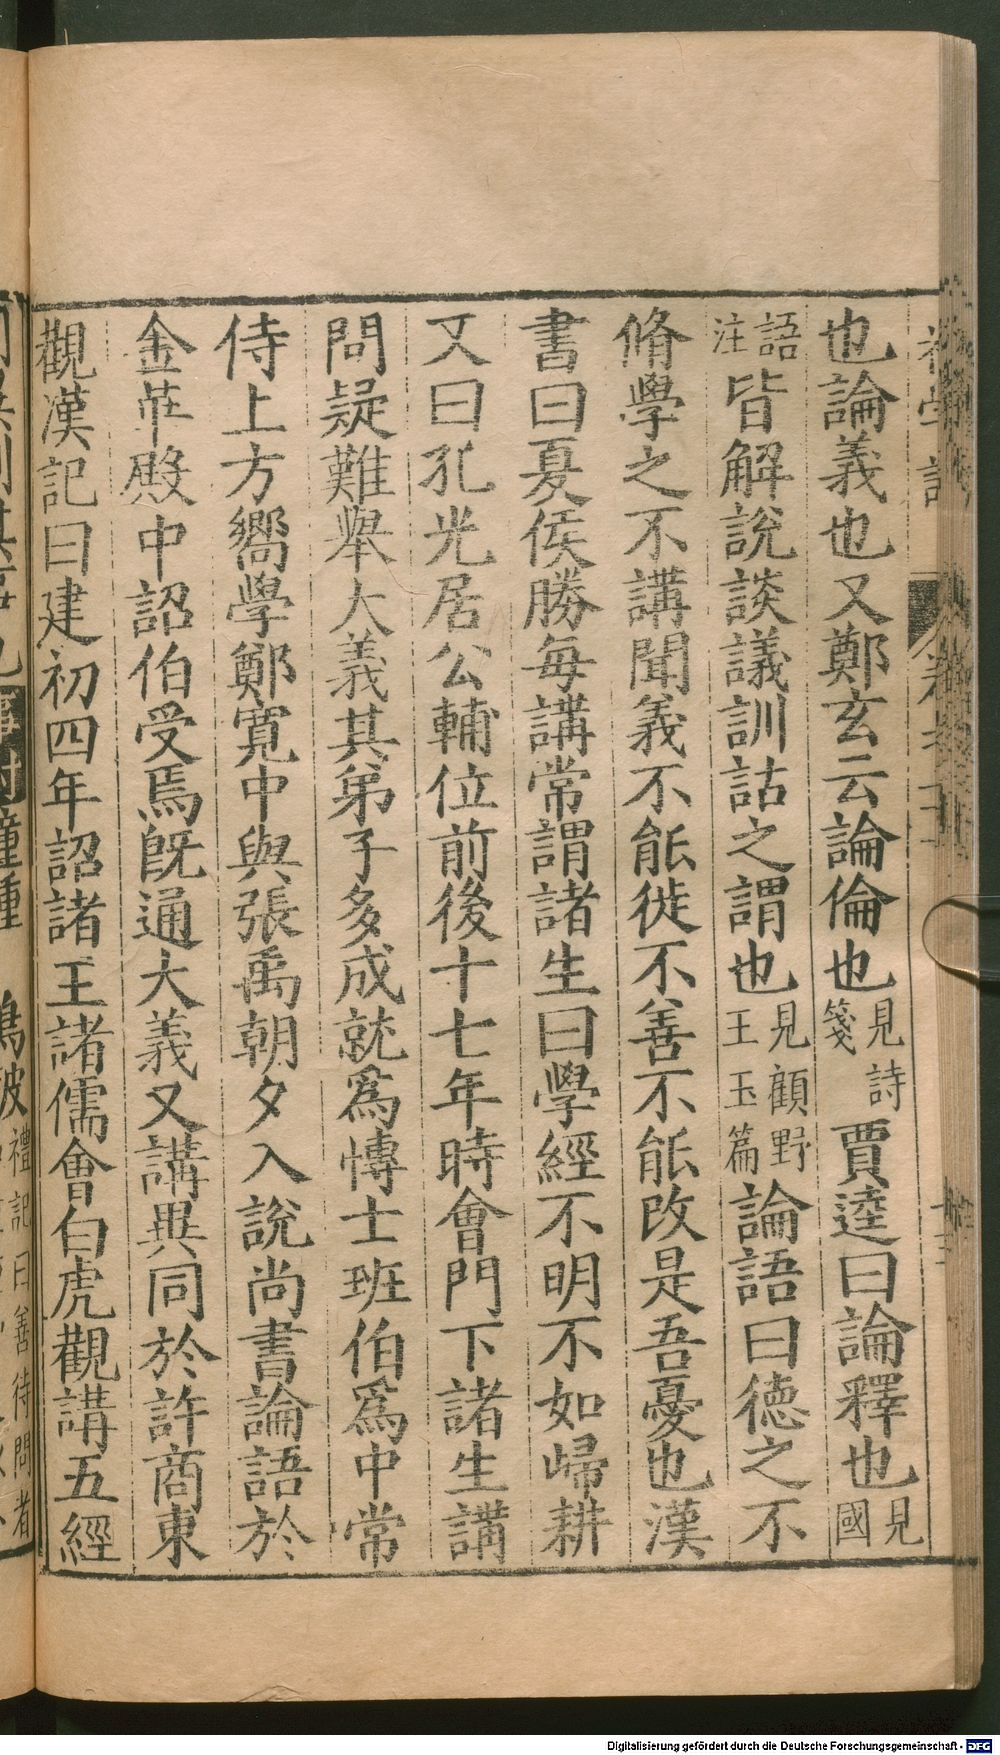 也論義也又鄭玄云論倫也見詩箋賈逵曰論釋也見國
語注皆解說談議訓詁之謂也見顧野王玉篇論語曰德之不
脩學之不講聞義不能徙不善不能改是吾憂也漢
書曰夏侯勝每講常謂諸生曰學經不明不如歸耕
又曰孔光居公輔位前後十七年時會門下諸生講
問疑難舉大義其弟子多成就爲博士班伯爲中常
侍上方嚮學鄭寬中與張禹朝夕入說尚書論語於
金華殿中詔伯受焉旣通大義又講異同於許商東
觀漢記曰建初四年詔諸王諸儒會白虎觀講五經
禮記曰善待問者
Digitalisierung gefördert durch die Deutsche Forschungsgemeinschaft - DFG